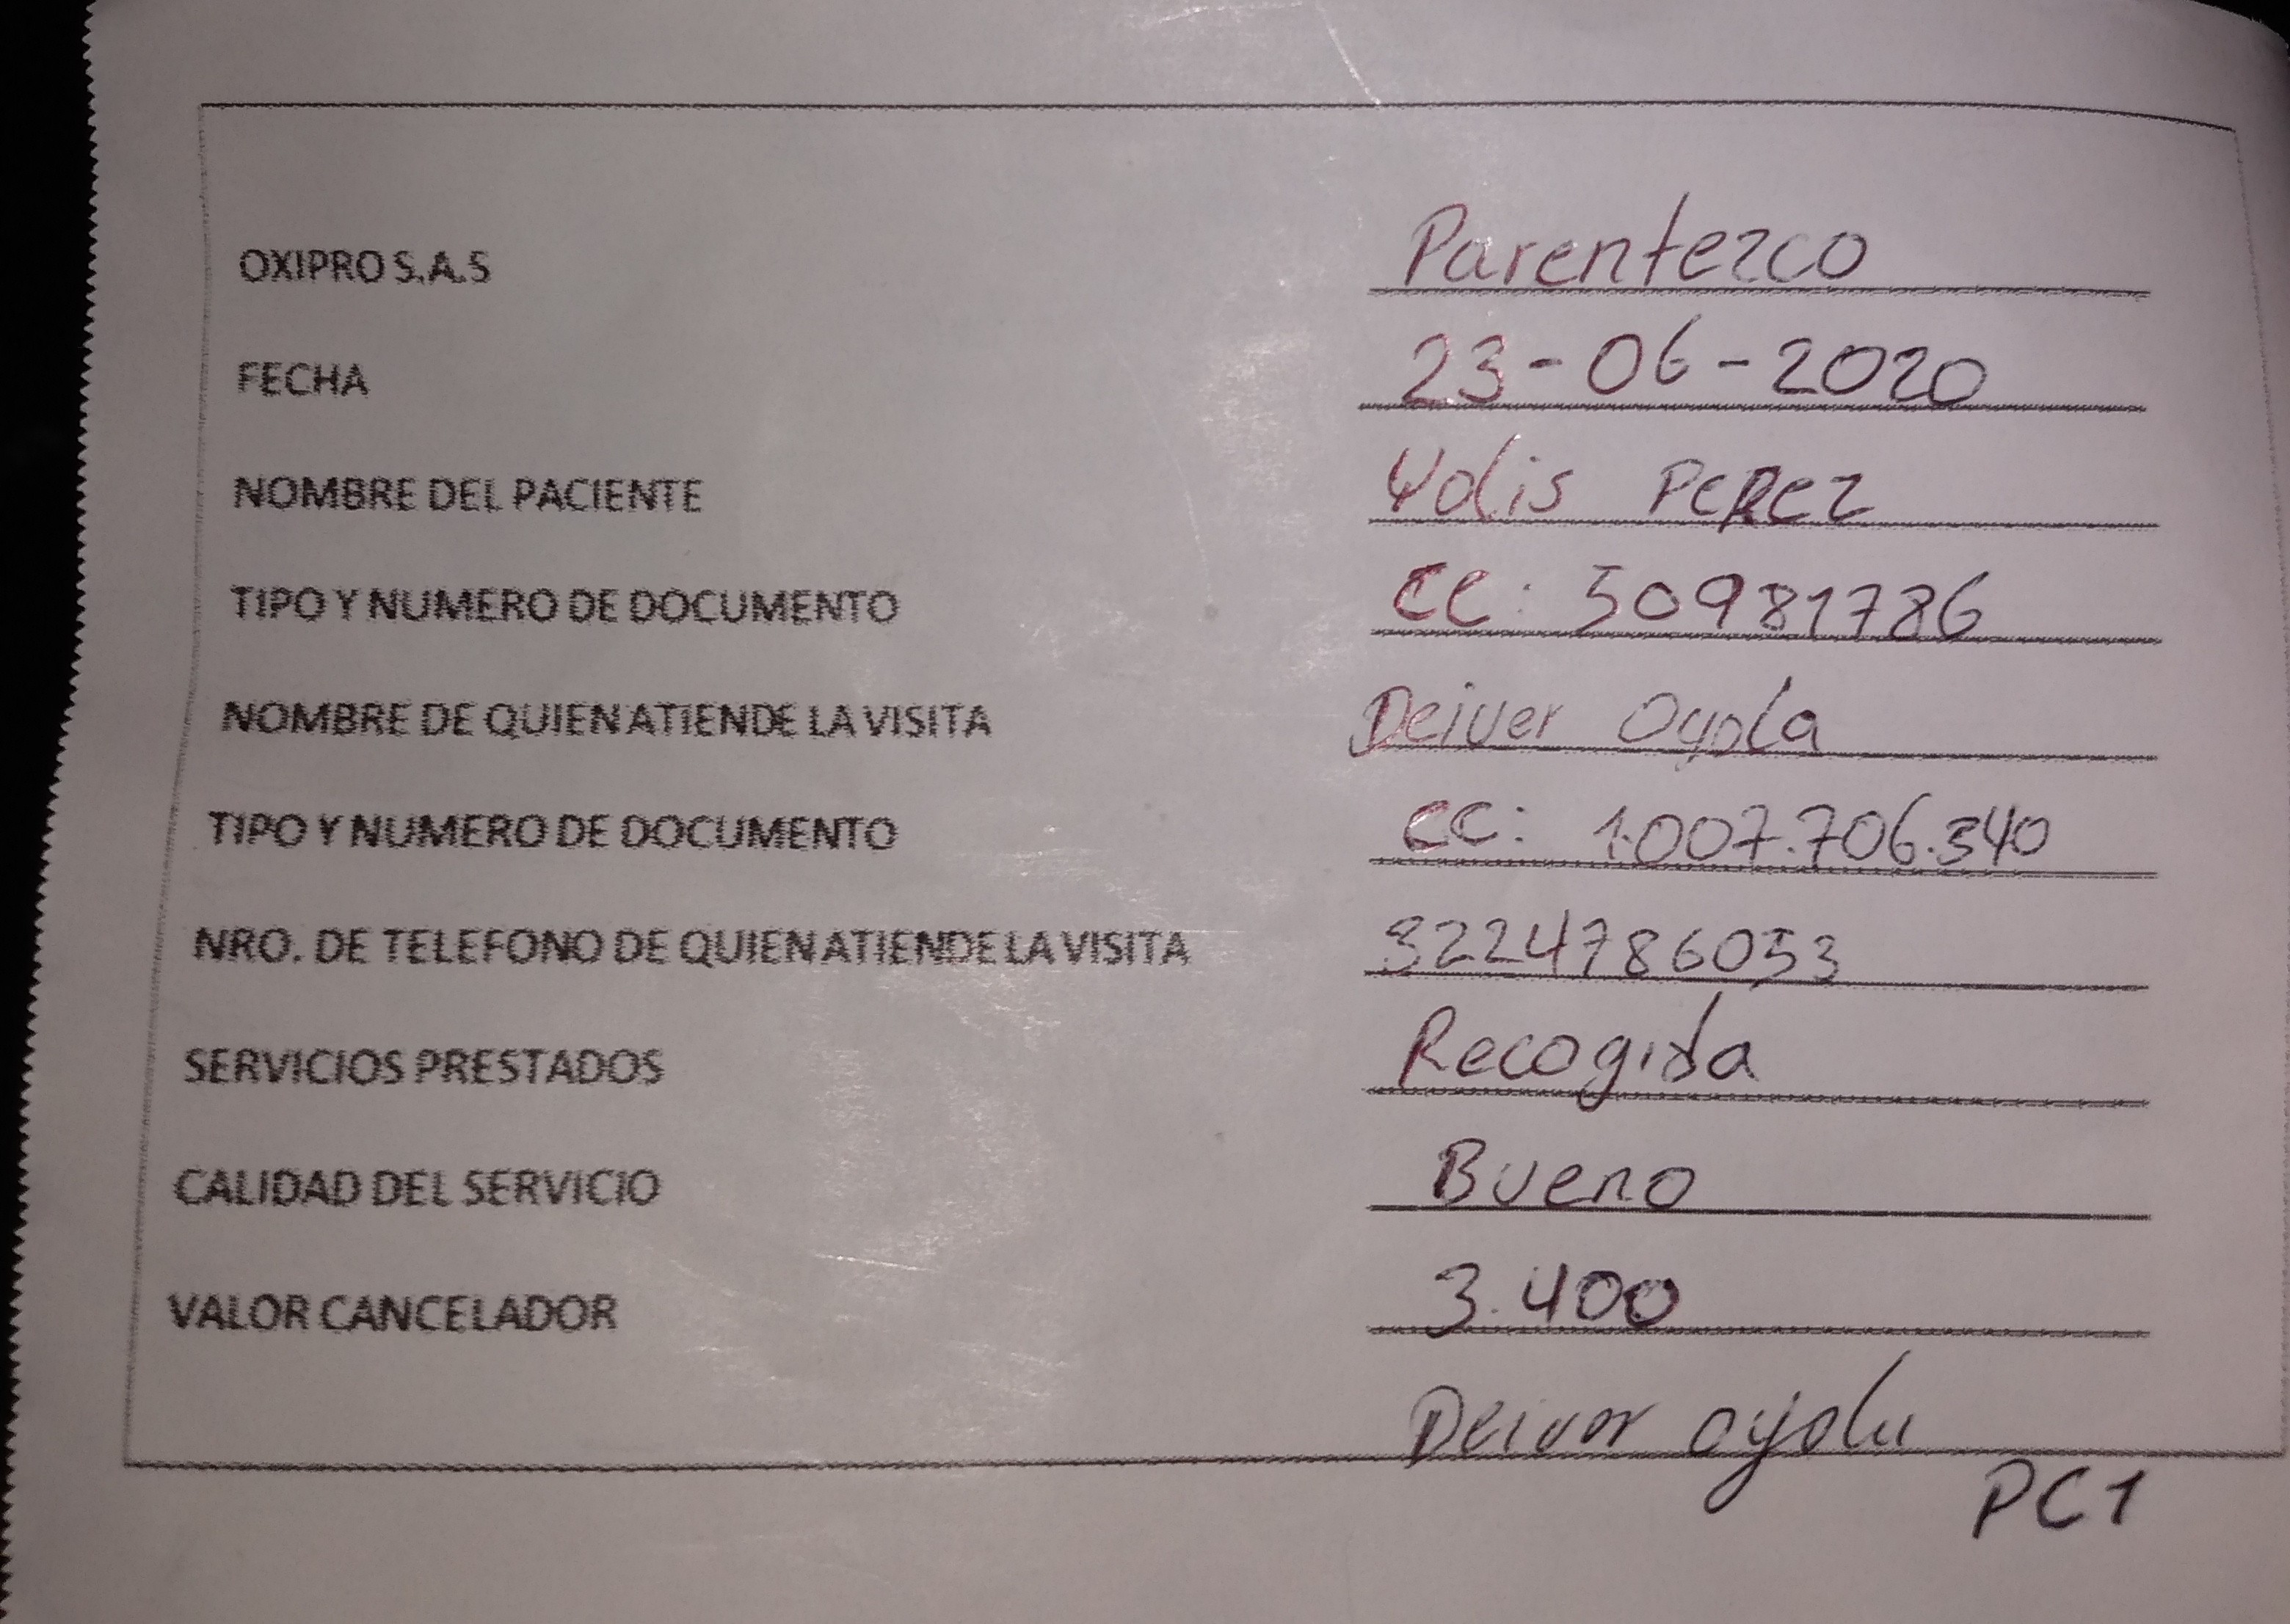 OXIPRO S.A.S Parentezco
FECHA 23-06-2020
NOMBRE DEL PACIENTE Yolis PEREZ
TIPO Y NUMERO DE DOCUMENTO CC: 50981786
NOMBRE DE QUIEN ATIENDE LA VISITA Deiver Oyola
TIPO Y NUMERO DE DOCUMENTO CC: 1.007.706.340
NRO. DE TELEFONO DE QUIEN ATIENDE LA VISITA 3224786053
SERVICIOS PRESTADOS Recogida
CALIDAD DEL SERVICIO Bueno
VALOR CANCELADOR 3.400
Deiver oyola
PC1